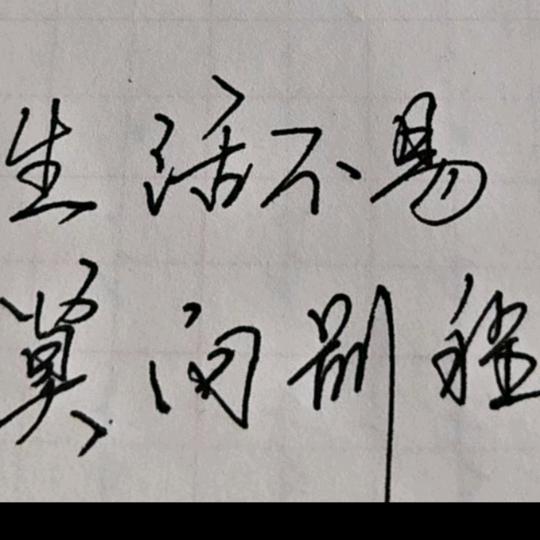 生活不易
莫问前程